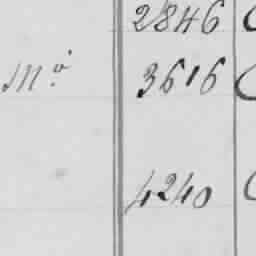 2846
Mº 3616
4240